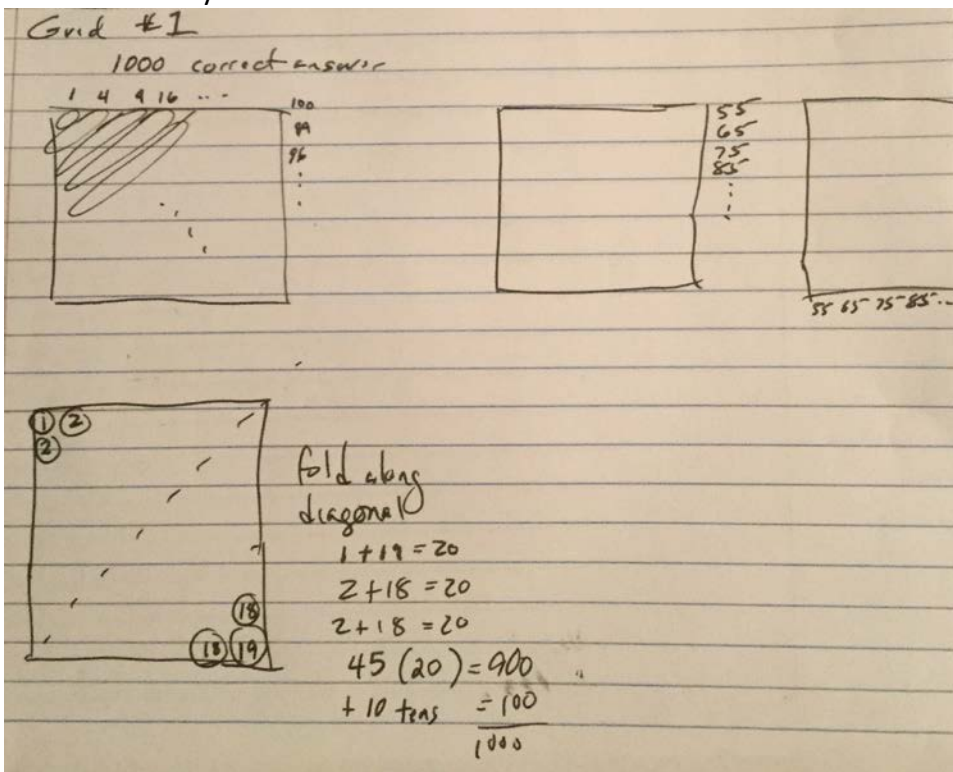 Grid #1
1000 correct answer
1 4 9 16 ...
100
99
96
55
65
75
85
55 65 75 85 ...
1 2
2
fold along
diagonal
1 + 19 = 20
2 + 18 = 20
2 + 18 = 20
18
18 19
45 (20) = 900
+ 10 tens = 100
1000